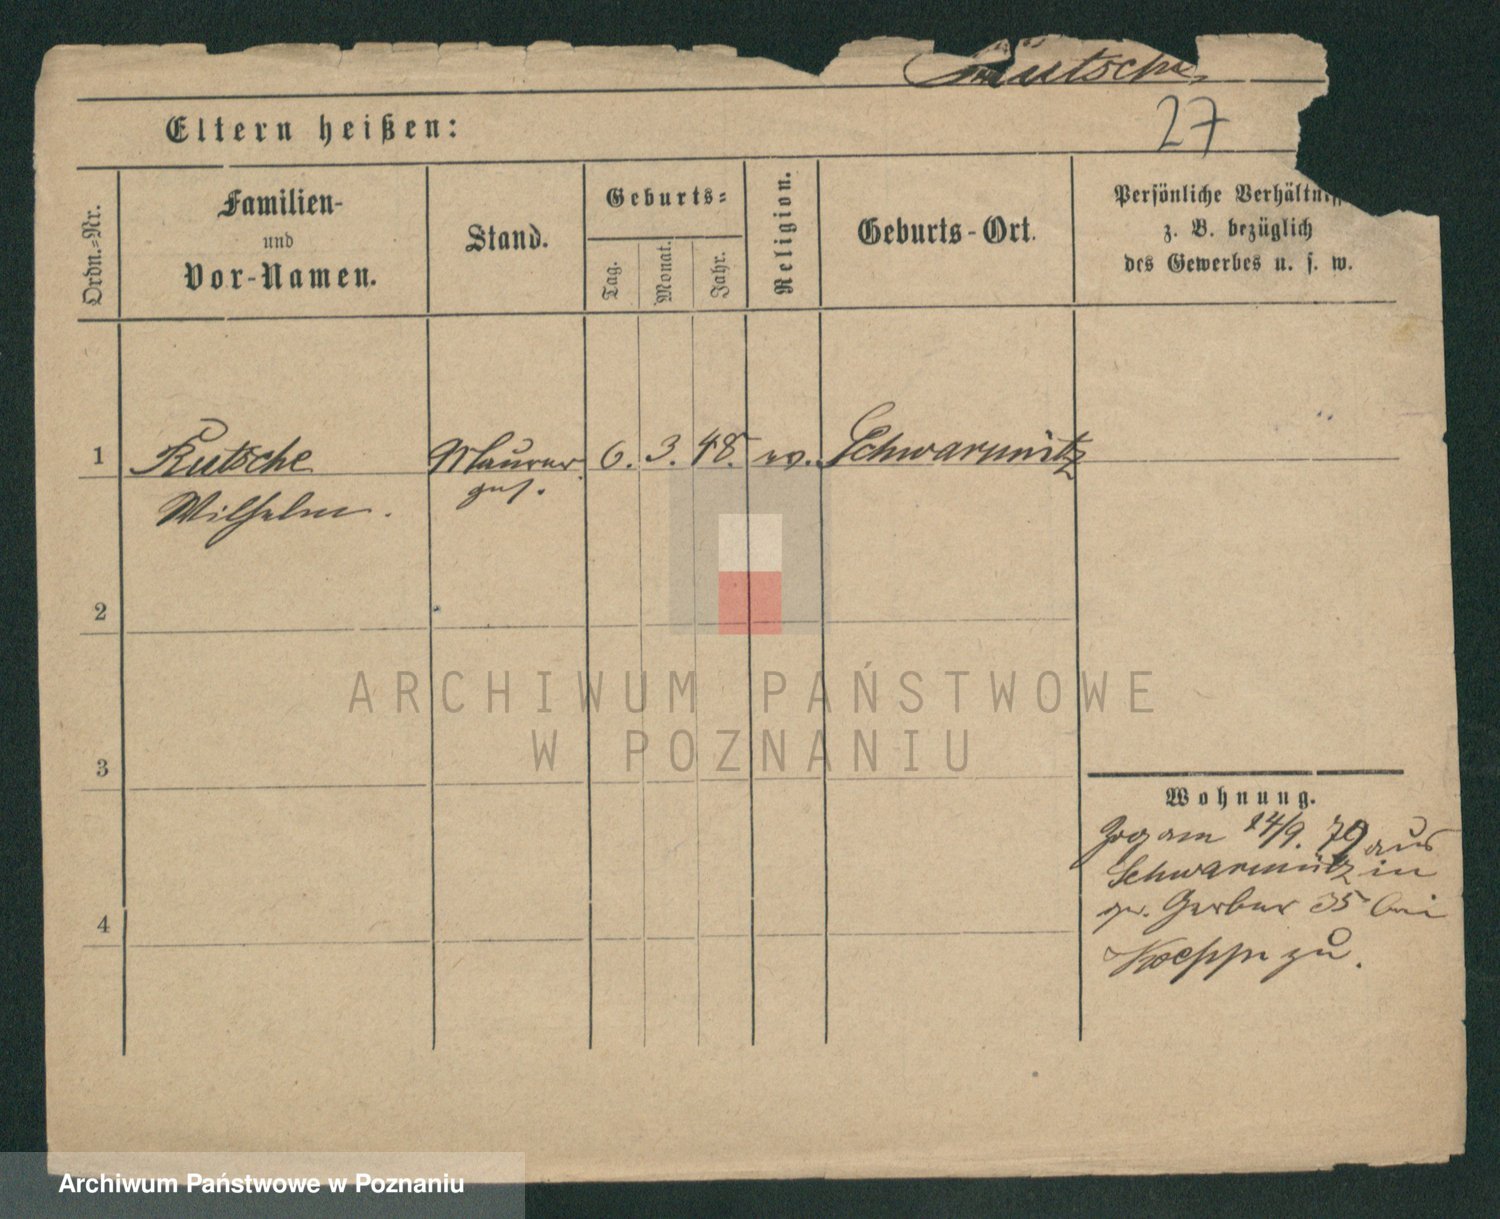 27
Eltern heißen:
Ordn.=Nr.
Familien-
und
Vor-Namen.
Stand.
Geburts=
Tag.
Monat.
Jahr.
Religion.
Geburts-Ort.
Persönliche Verhältniss
z. B. bezüglich
des Gewerbes u. s. w.
1 Kutsche Maurer 6. 3. 48. ev. Schwarmitz
Wilhelm. ges.
2
ARCHIWUM PAŃSTWOWE
W POZNANIU
3
Wohnung.
Zog am 14/9. 79 aus
Schwarmitz in
gr. Gerber 35 bei
Koeppe zu.
4
Archiwum Państwowe w Poznaniu